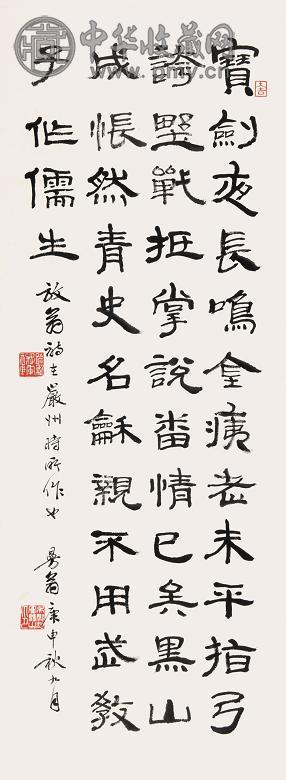 中华收藏网
寶劍夜長鳴金痍老未平指弓
誇墅戰抵掌說番情已矣黑山
戍悵然青史名龢親不用武教
子作儒生
放翁詩在嚴州時所作也 曼翁庚申秋九月